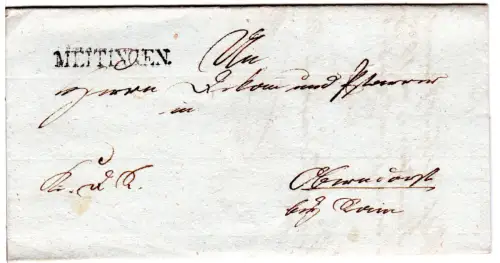 MEITINGEN.
An
Herrn Dekan und Pfarrer
in
K. D. K.
Oberndorf
bey Rain